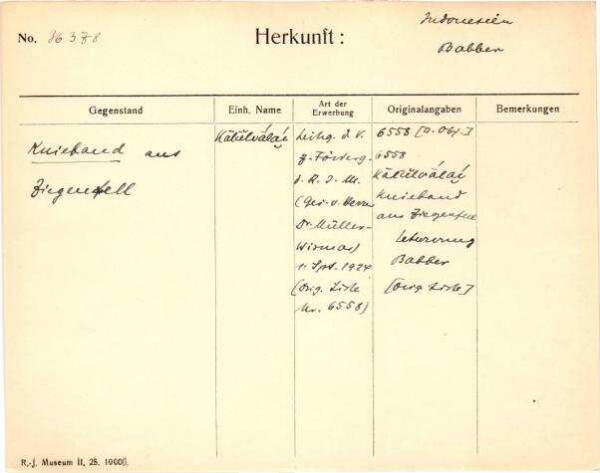 No. 16378 Herkunft: Indonesien
Babber
Gegenstand Einh. Name Art der Erwerbung Originalangaben Bemerkungen
Knieband aus
Ziegenfell
Kākŭlvăláy
Leihg. d. V.
z. Förderg.
d. R. J. M.
(Ges. v. Herrn
Dr. Müller-
Wismar)
1. Spt. 1927
(Orig. Liste
Nr. 6558)
6558 [a. Obj.]
6558
Kākŭlvăláy
Knieband
aus Ziegenfell
Babber
[Orig. Liste]
R.-J. Museum II, 25. 10000.